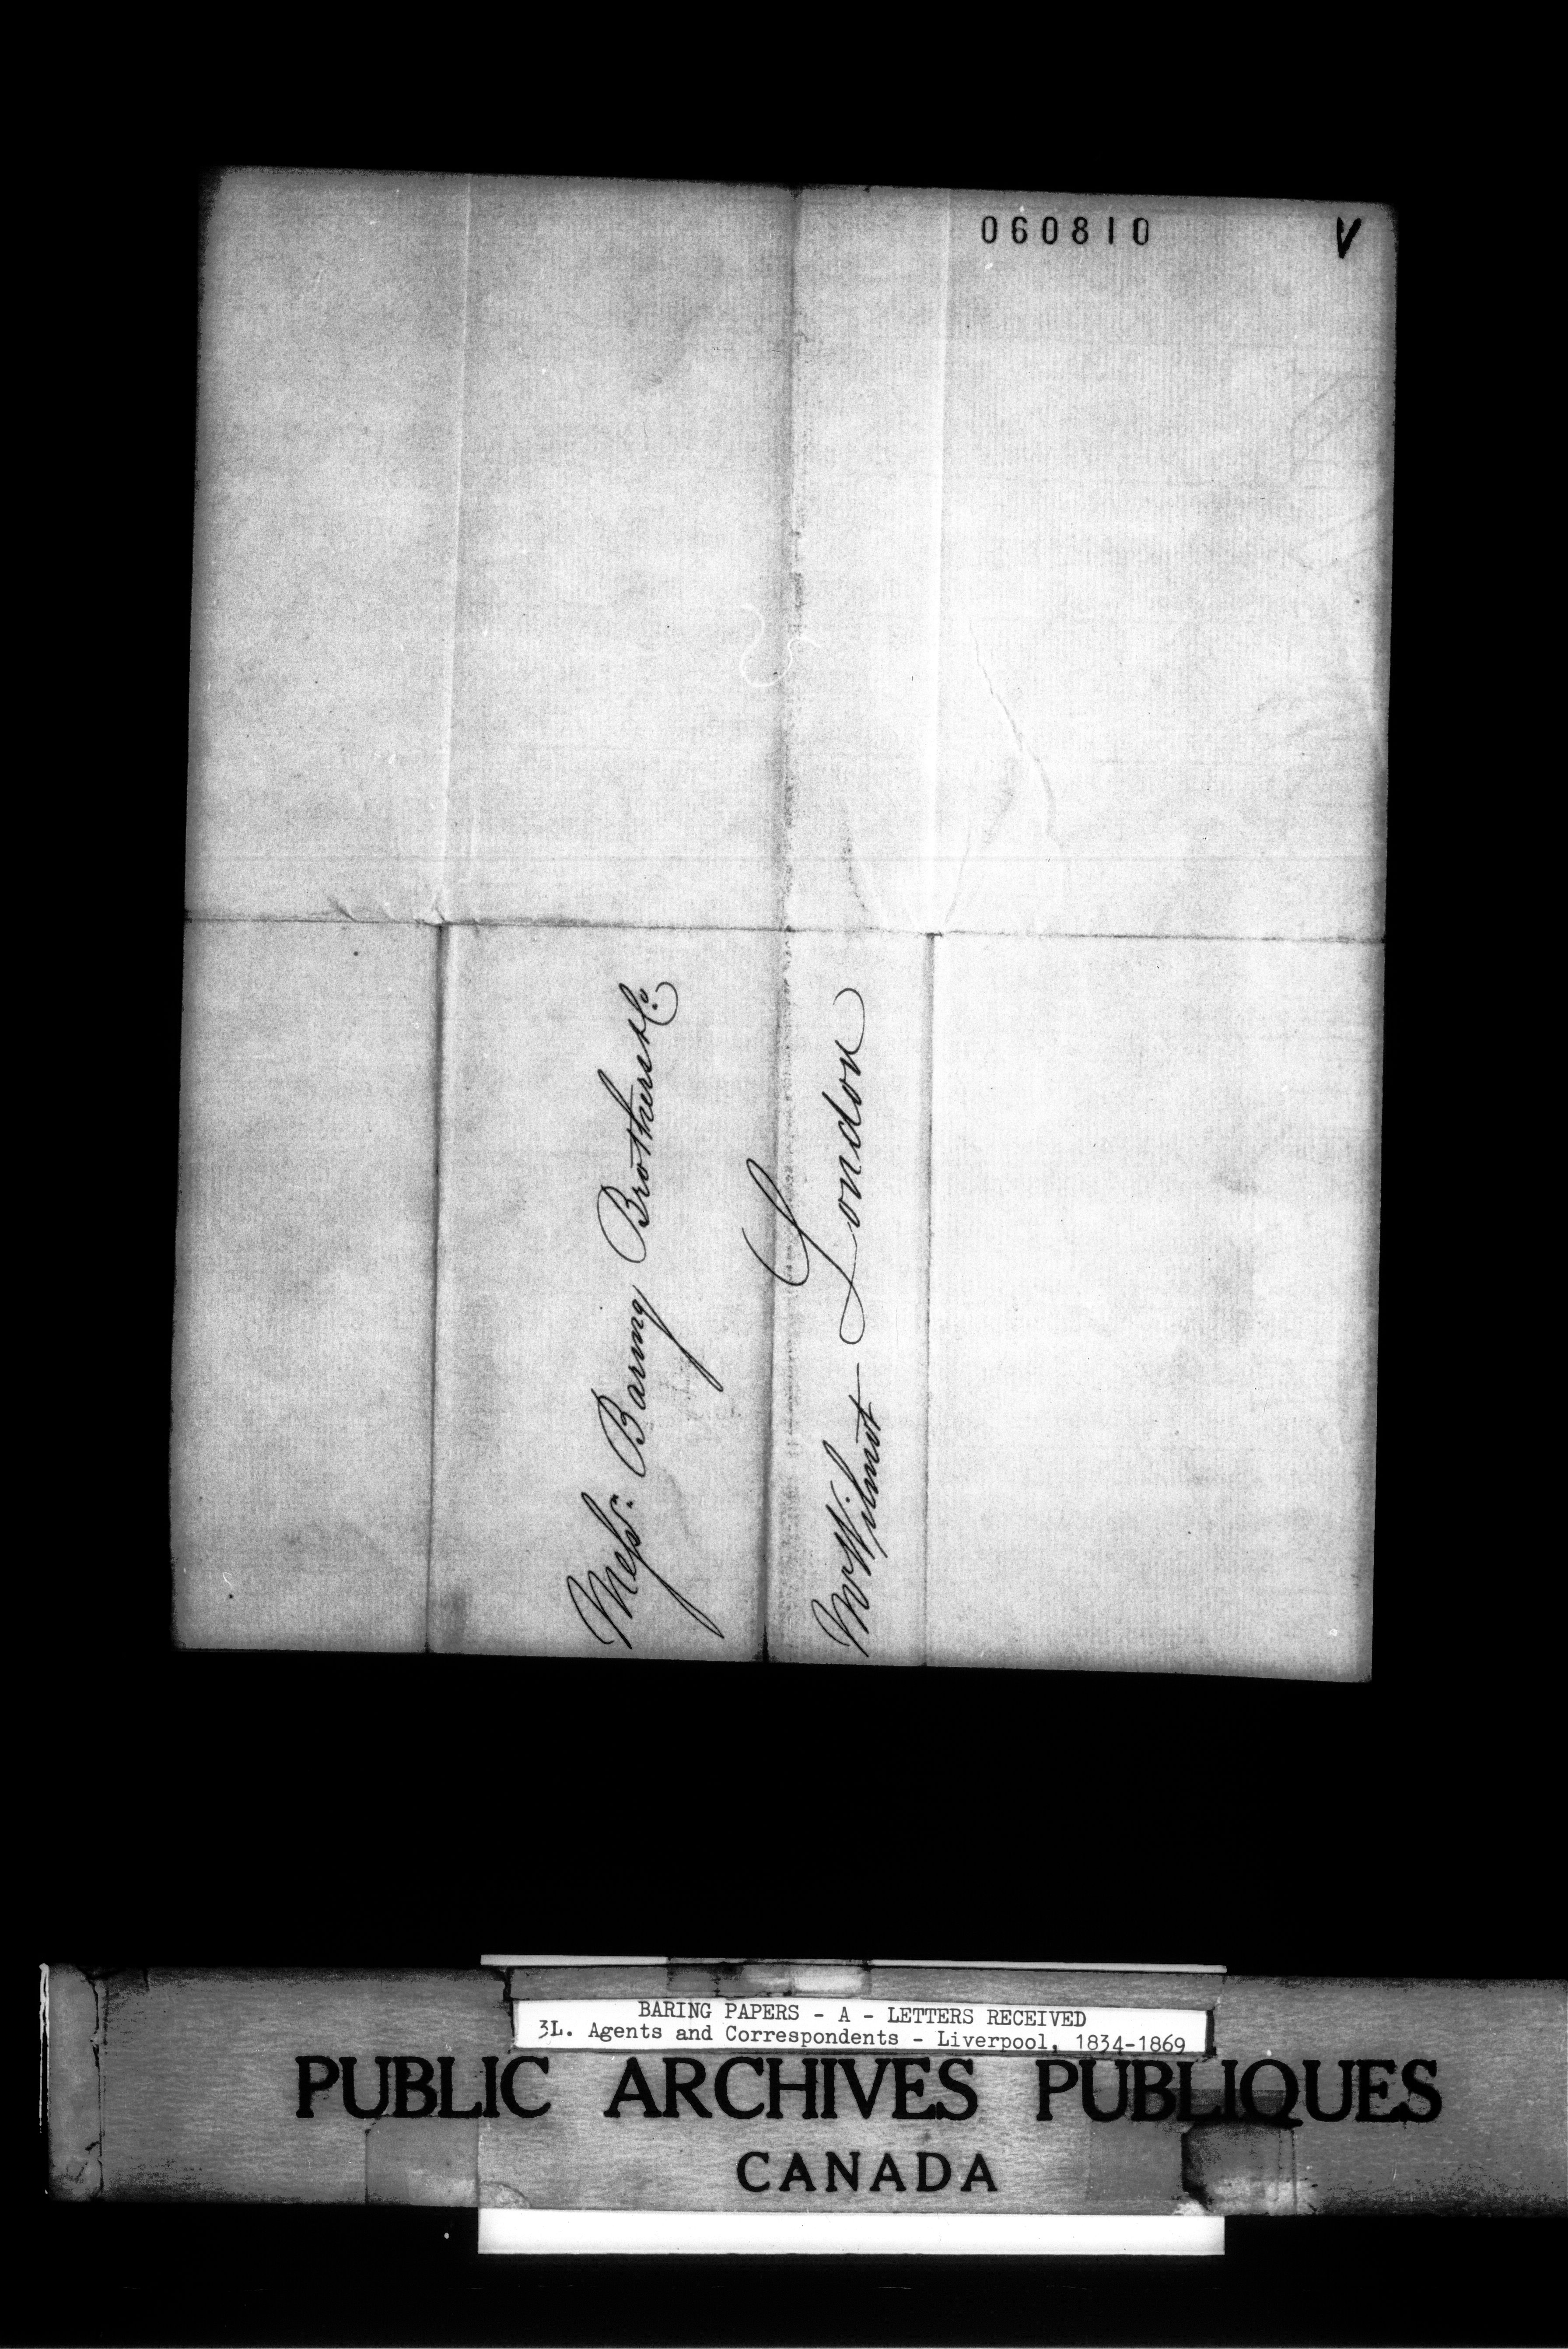 060810
V
Messrs. Baring Brothers & Co.
London
Mr Wilmot
BARING PAPERS - A - LETTERS RECEIVED
3L. Agents and Correspondents - Liverpool, 1834-1869
PUBLIC ARCHIVES PUBLIQUES
CANADA